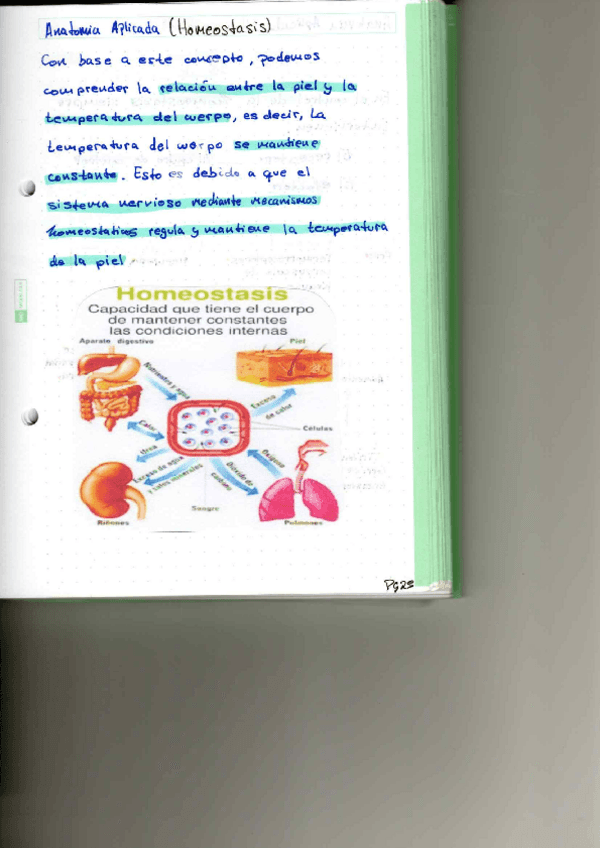 Anatomia Aplicada (Homeostasis)
Con base a este concepto, podemos
comprender la relación entre la piel y la
temperatura del cuerpo, es decir, La
temperatura del cuerpo se mantiene
constante. Esto es debido a que el
sistema nervioso mediante mecanismos
homeostaticos regula y mantiene la temperatura
de la piel
Homeostasis
Capacidad que tiene el cuerpo
de mantener constantes
las condiciones internas
Aparato digestivo
Piel
Nutrientes y agua
Exceso
de calor
Calor
Células
Urea
Exceso de agua
y sales minerales
Dióxido de
carbono
Oxígeno
Sangre
Riñones
Pulmones
Pg23